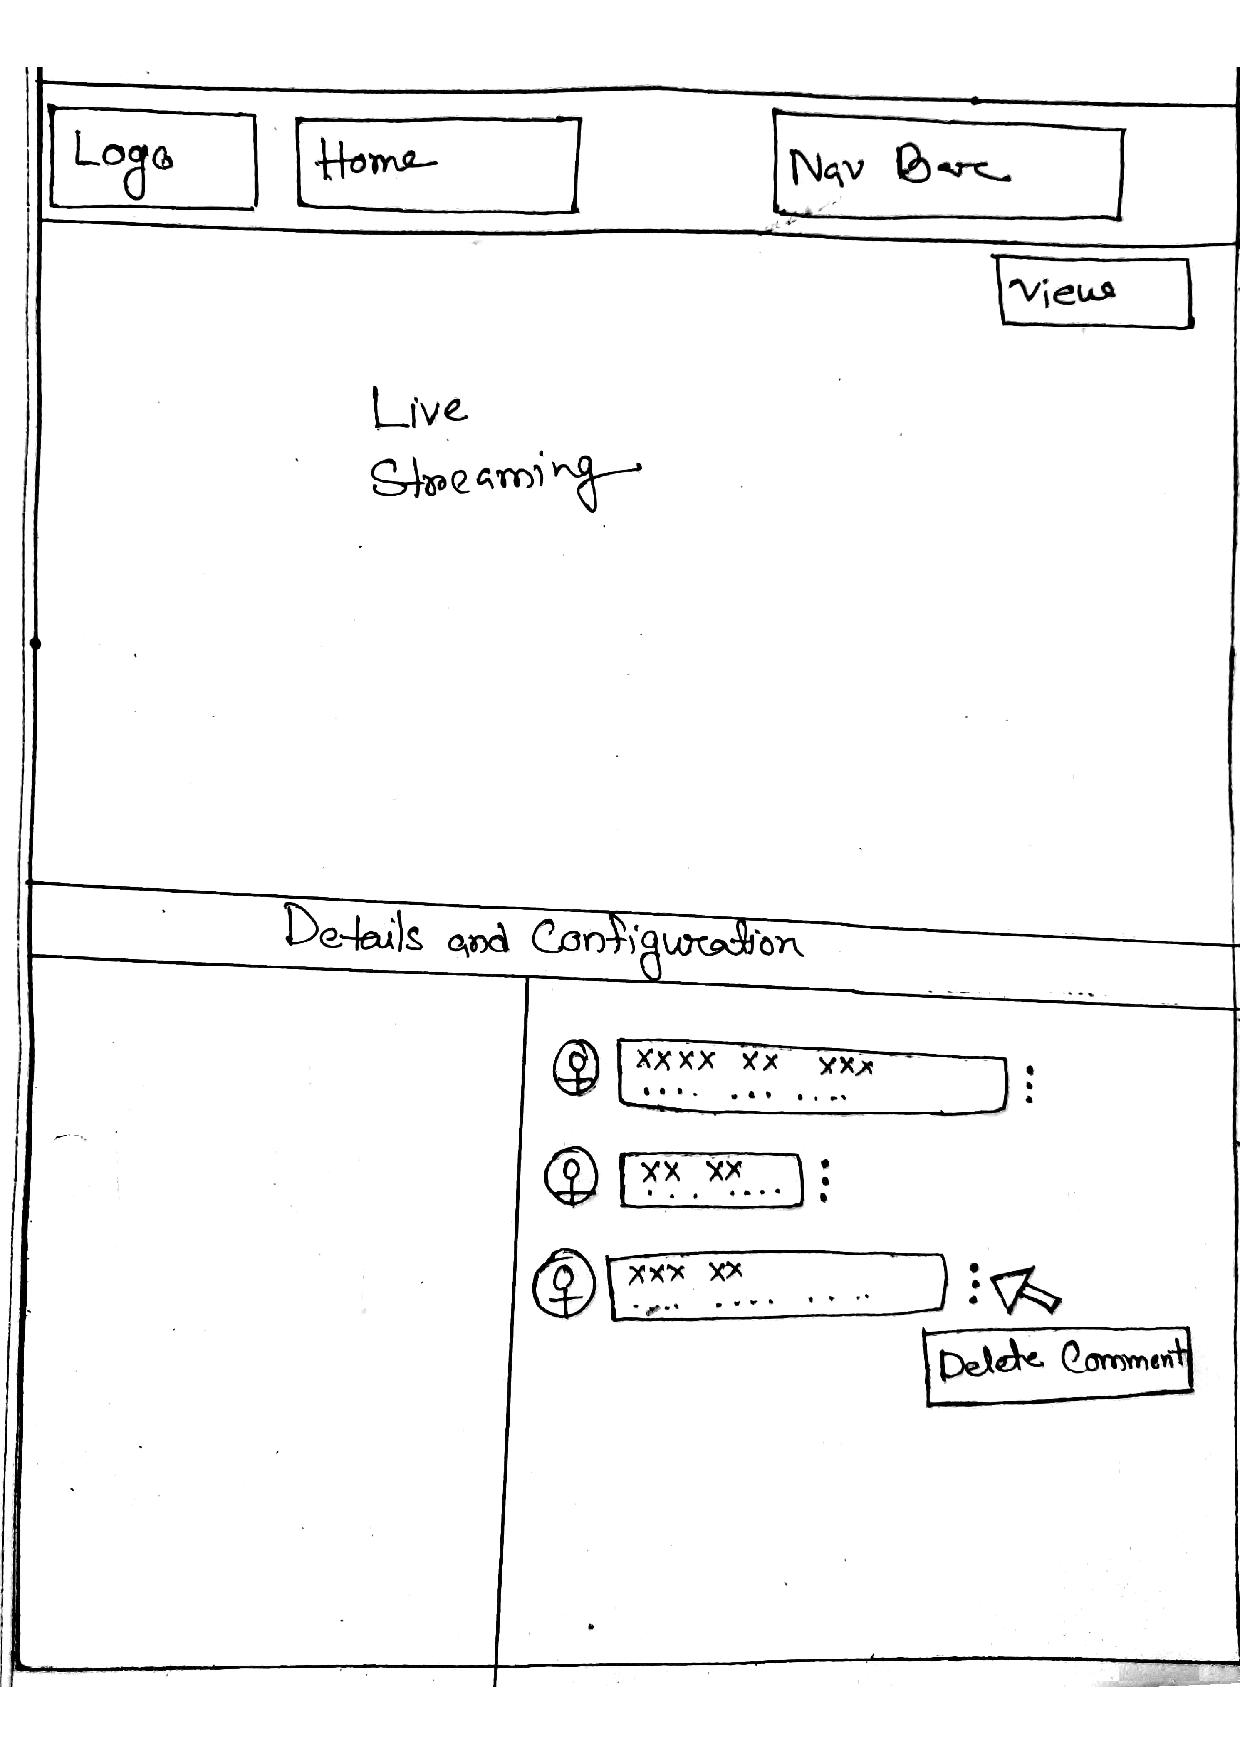 Logo
Home
Nav Bar
Views
Live
Streaming
Details and Configuration
xxxx xx xxx
.... ... ....
xx xx
... ....
xxx xx
.... .... ....
Delete Comment